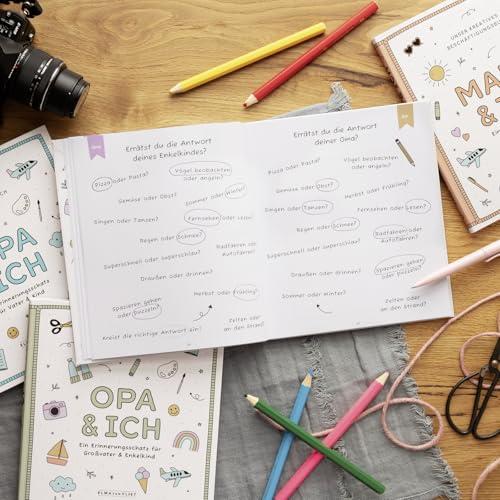 Oma
Errätst du die Antwort
deines Enkelkindes?
Pizza oder Pasta?
Vögel beobachten
oder angeln?
Gemüse oder Obst?
Sommer oder Winter?
Singen oder Tanzen?
Fernsehen oder Lesen?
Regen oder Schnee?
Radfahren oder
Autofahren?
Superschnell oder superschlau?
Draußen oder drinnen?
Spazieren gehen
oder puzzeln?
Herbst oder Frühling?
Zelten oder
an den Strand?
Kreist die richtige Antwort ein!
Errätst du die Antwort
deiner Oma?
Pizza oder Pasta?
Vögel beobachten
oder angeln?
Gemüse oder Obst?
Herbst oder Frühling?
Singen oder Tanzen?
Fernsehen oder Lesen?
Regen oder Schnee?
Radfahren oder
Autofahren?
Superschnell oder superschlau?
Draußen oder drinnen?
Spazieren gehen
oder puzzeln?
Sommer oder Winter?
Zelten oder
an den Strand?
UNSER KREATIVES
BESCHÄFTIGUNGSBU
MA
&
OPA
& ICH
Ein Erinnerungsschatz
für Vater & Kind
OPA
& ICH
Ein Erinnerungsschatz für
Großvater & Enkelkind